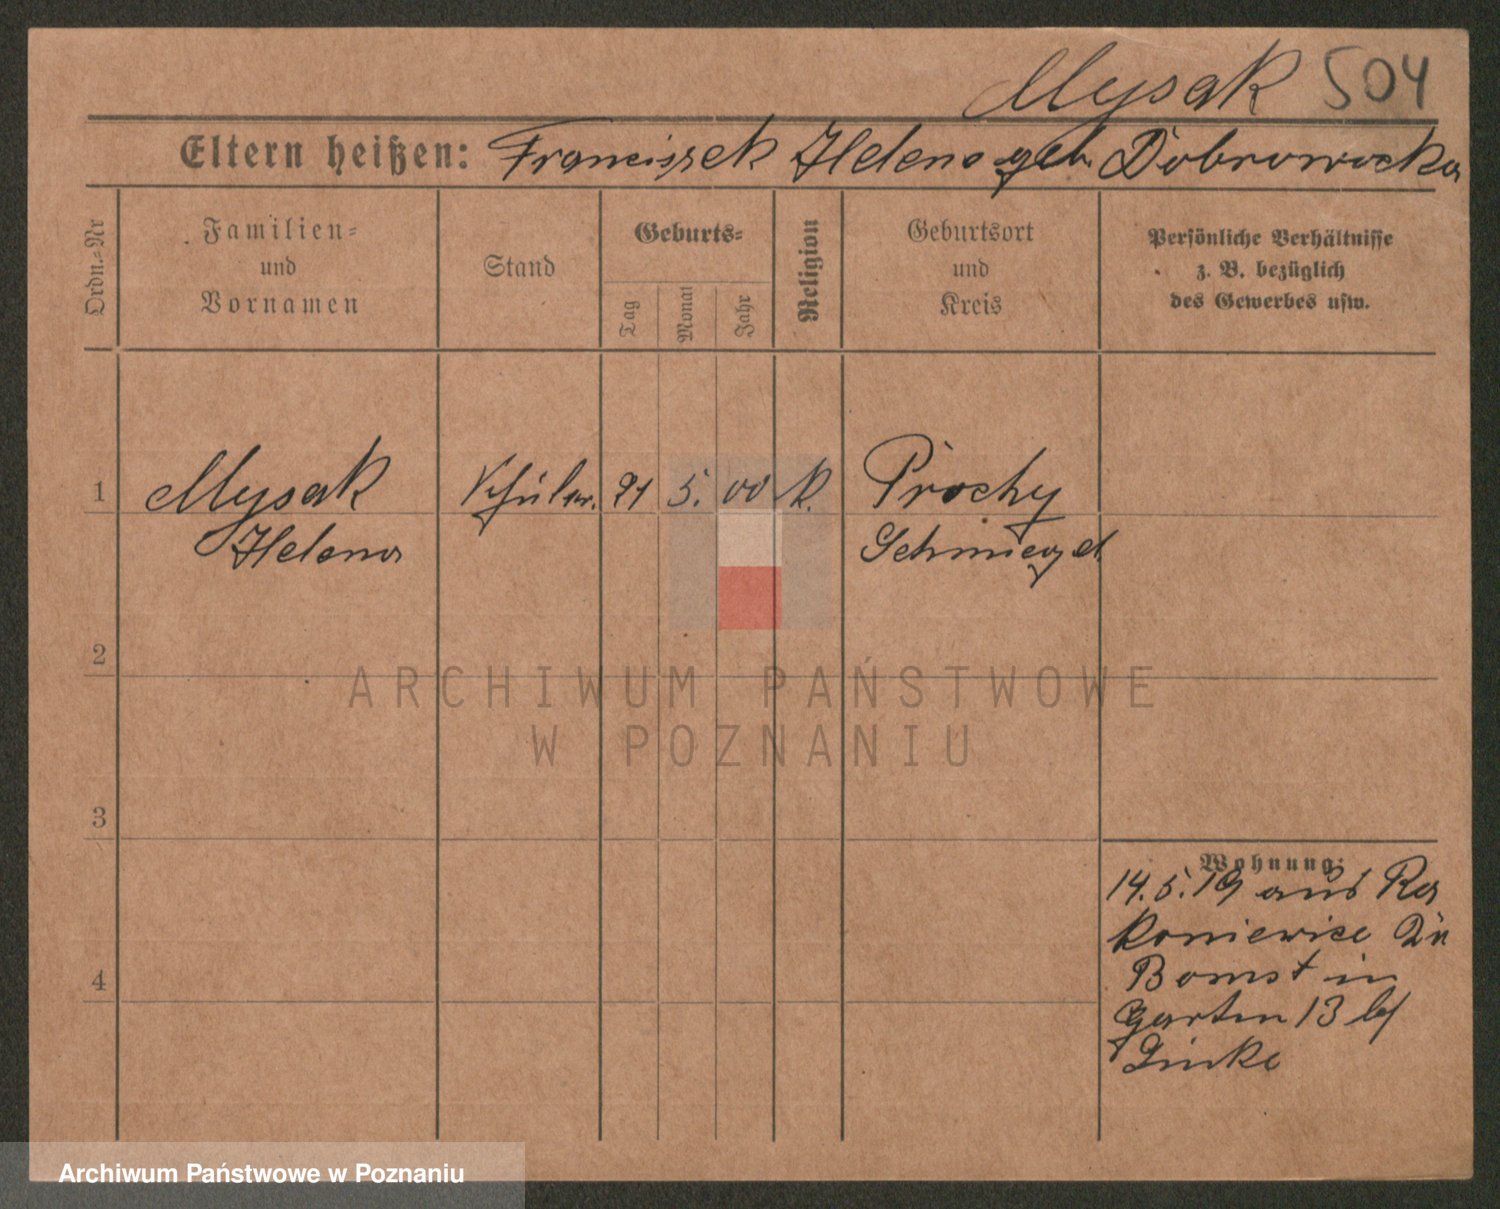 Mysak 504
Eltern heißen: Franciszek Helena geb. Dobrowocka
Ordn.-Nr
Familien-
und
Vornamen
Stand
Geburts-
Tag
Monat
Jahr
Religion
Geburtsort
und
Kreis
Persönliche Verhältnisse
z. B. bezüglich
des Gewerbes usw.
1 Mysak Schüler. 21 5. 00 k. Prochy
Helena Schmiegel
2
3
4
Wohnung:
14.5.19 aus Ra
koniewice
Bomst in
Garten 13 b/
Linke
ARCHIWUM PAŃSTWOWE
W POZNANIU
Archiwum Państwowe w Poznaniu